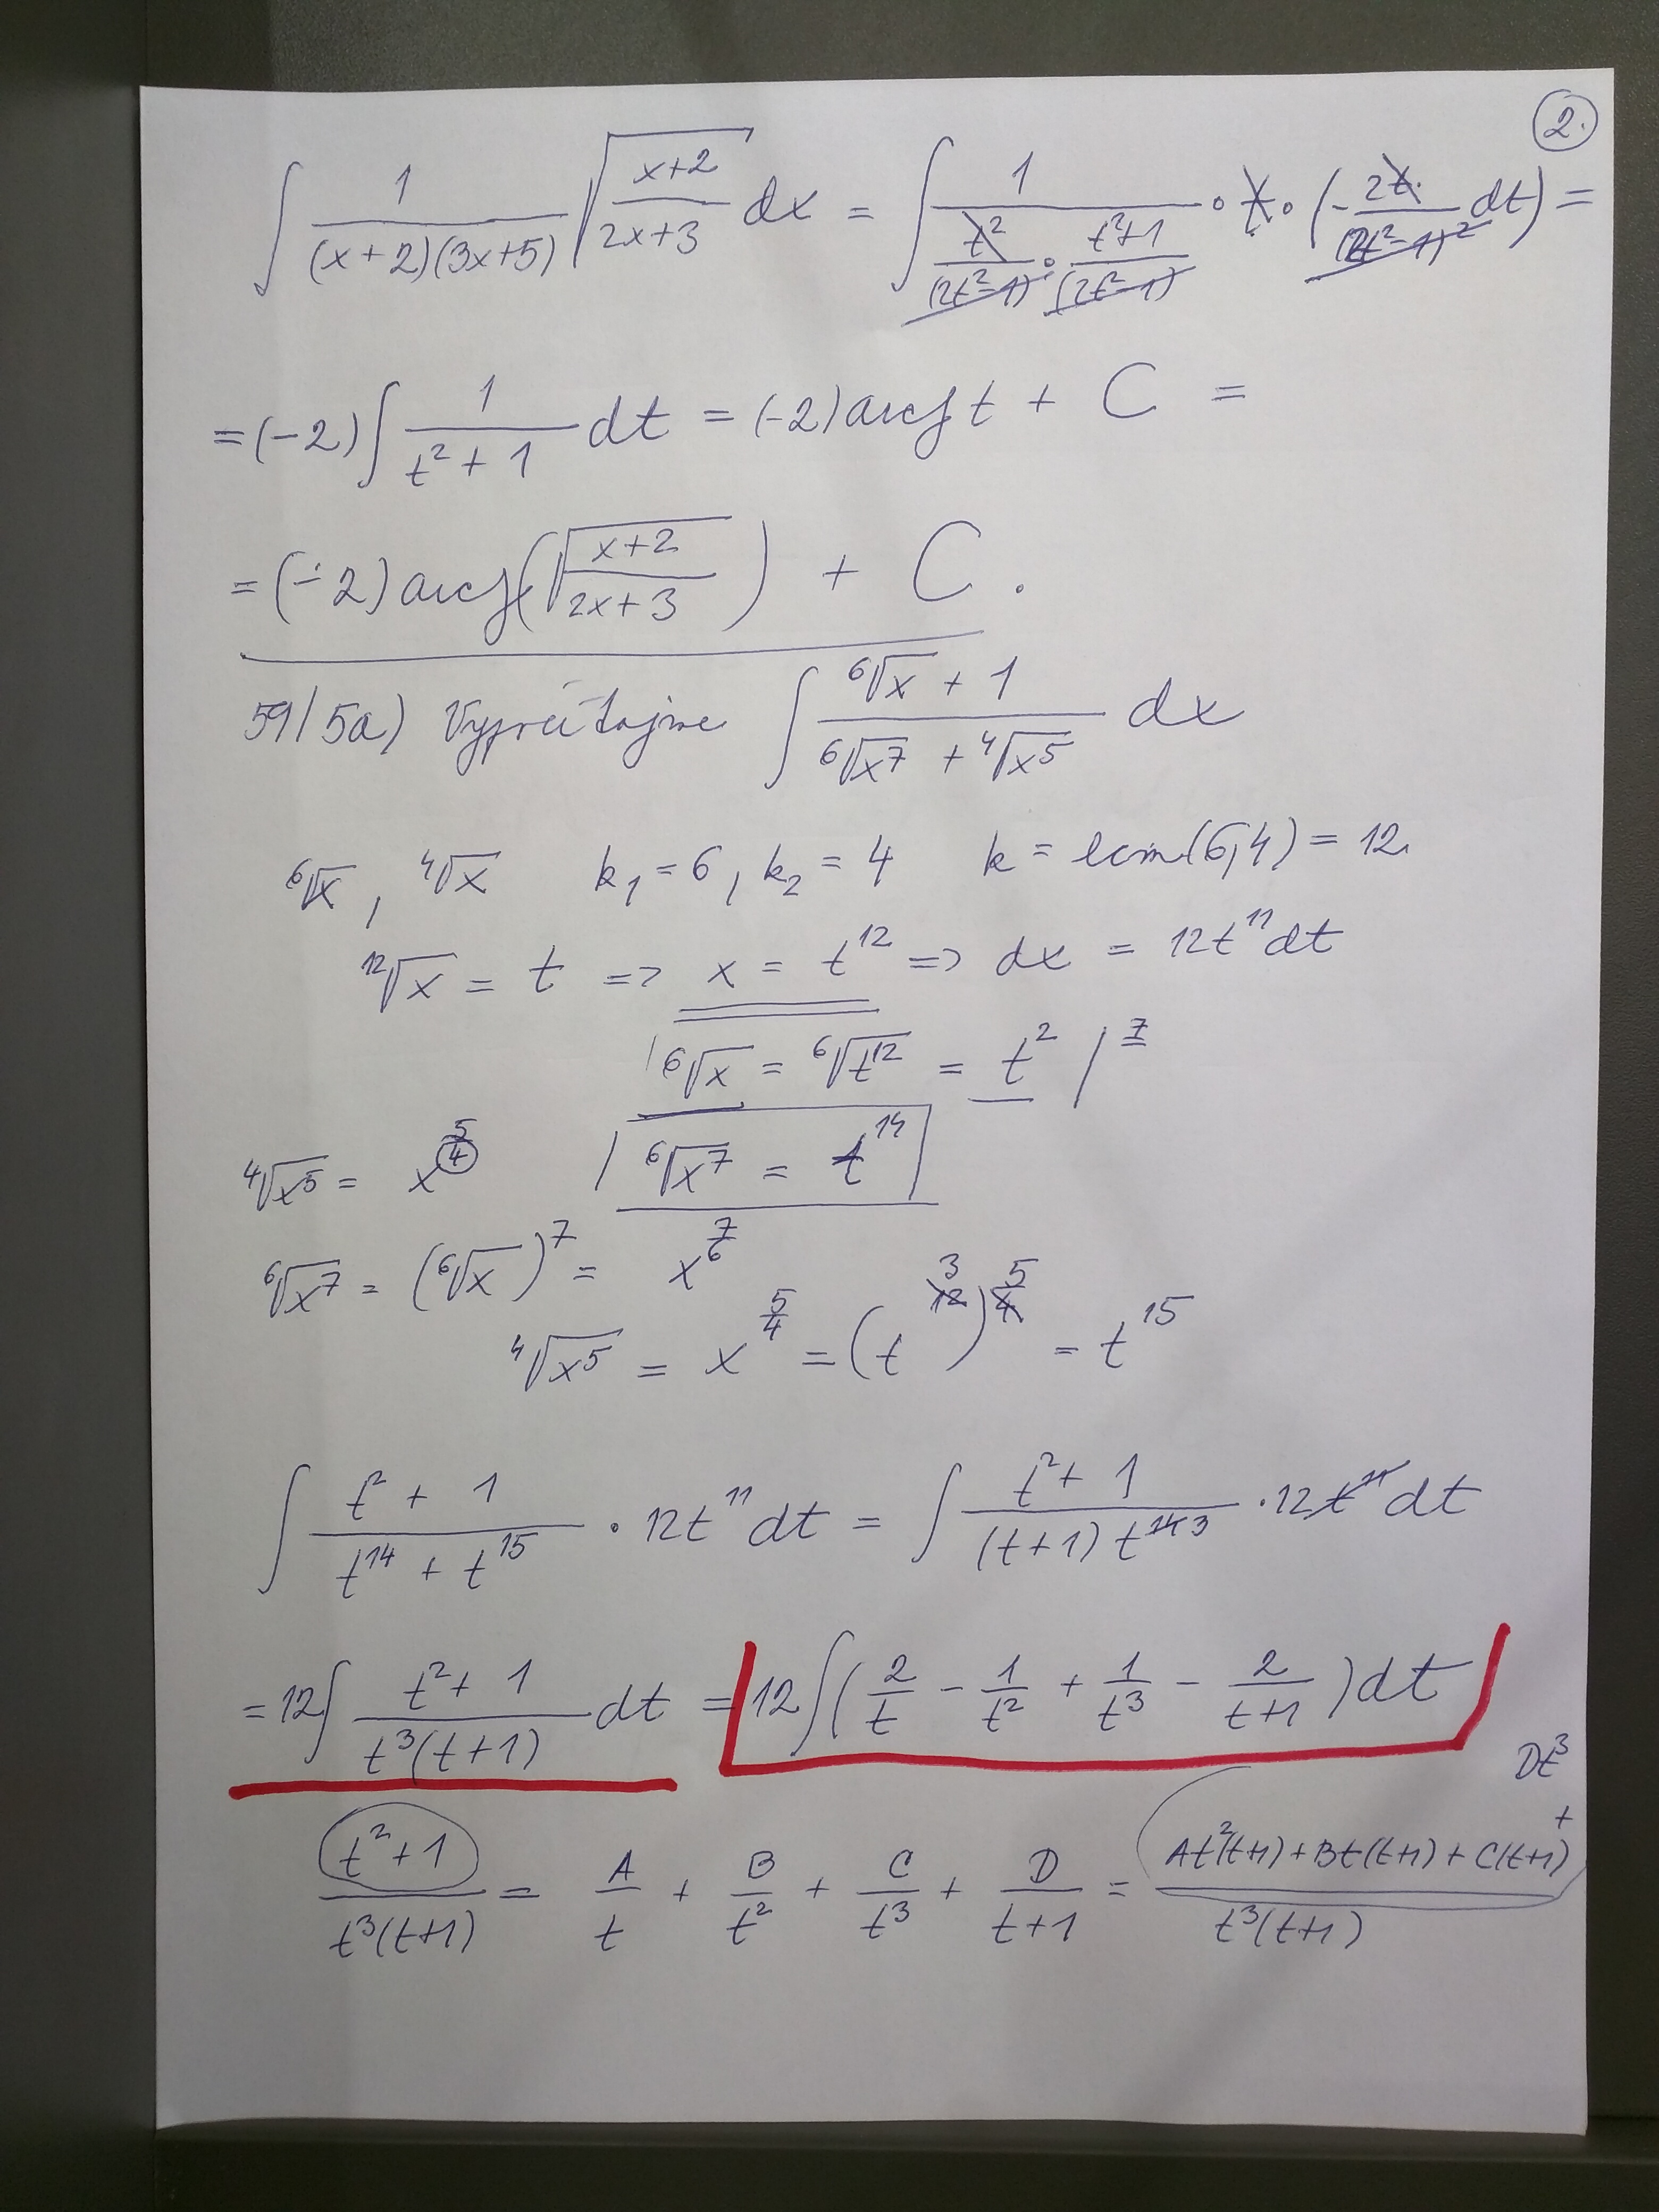 2.
∫ 1/((x+2)(3x+5)) √((x+2)/(2x+3)) dx = ∫ 1/(t²/(2t²-1) · (t²+1)/(2t²-1)) · t · (- 2t/(2t²-1)² dt) =
= (-2) ∫ 1/(t²+1) dt = (-2) arctg t + C =
= (-2) arctg(√((x+2)/(2x+3))) + C.
59/5a) Vypočítajme ∫ (⁶√x + 1)/(⁶√x⁷ + ⁴√x⁵) dx
⁶√x, ⁴√x k₁ = 6, k₂ = 4 k = lcm(6,4) = 12.
¹²√x = t => x = t¹² => dx = 12t¹¹dt
⁶√x = ⁶√t¹² = t² / ⁷
⁴√x⁵ = x^(5/4) ⁶√x⁷ = t¹⁴
⁶√x⁷ = (⁶√x)⁷ = x^(7/6)
⁴√x⁵ = x^(5/4) = (t¹²)^(5/4) 3 = t¹⁵
∫ (t² + 1)/(t¹⁴ + t¹⁵) · 12t¹¹dt = ∫ (t² + 1)/((t+1) t¹⁴ ³) · 12t¹¹dt
= 12∫ (t² + 1)/(t³(t+1)) dt = 12∫(2/t - 1/t² + 1/t³ - 2/(t+1))dt
(t²+1)/(t³(t+1)) = A/t + B/t² + C/t³ + D/(t+1) = (At²(t+1) + Bt(t+1) + C(t+1) + Dt³)/(t³(t+1))